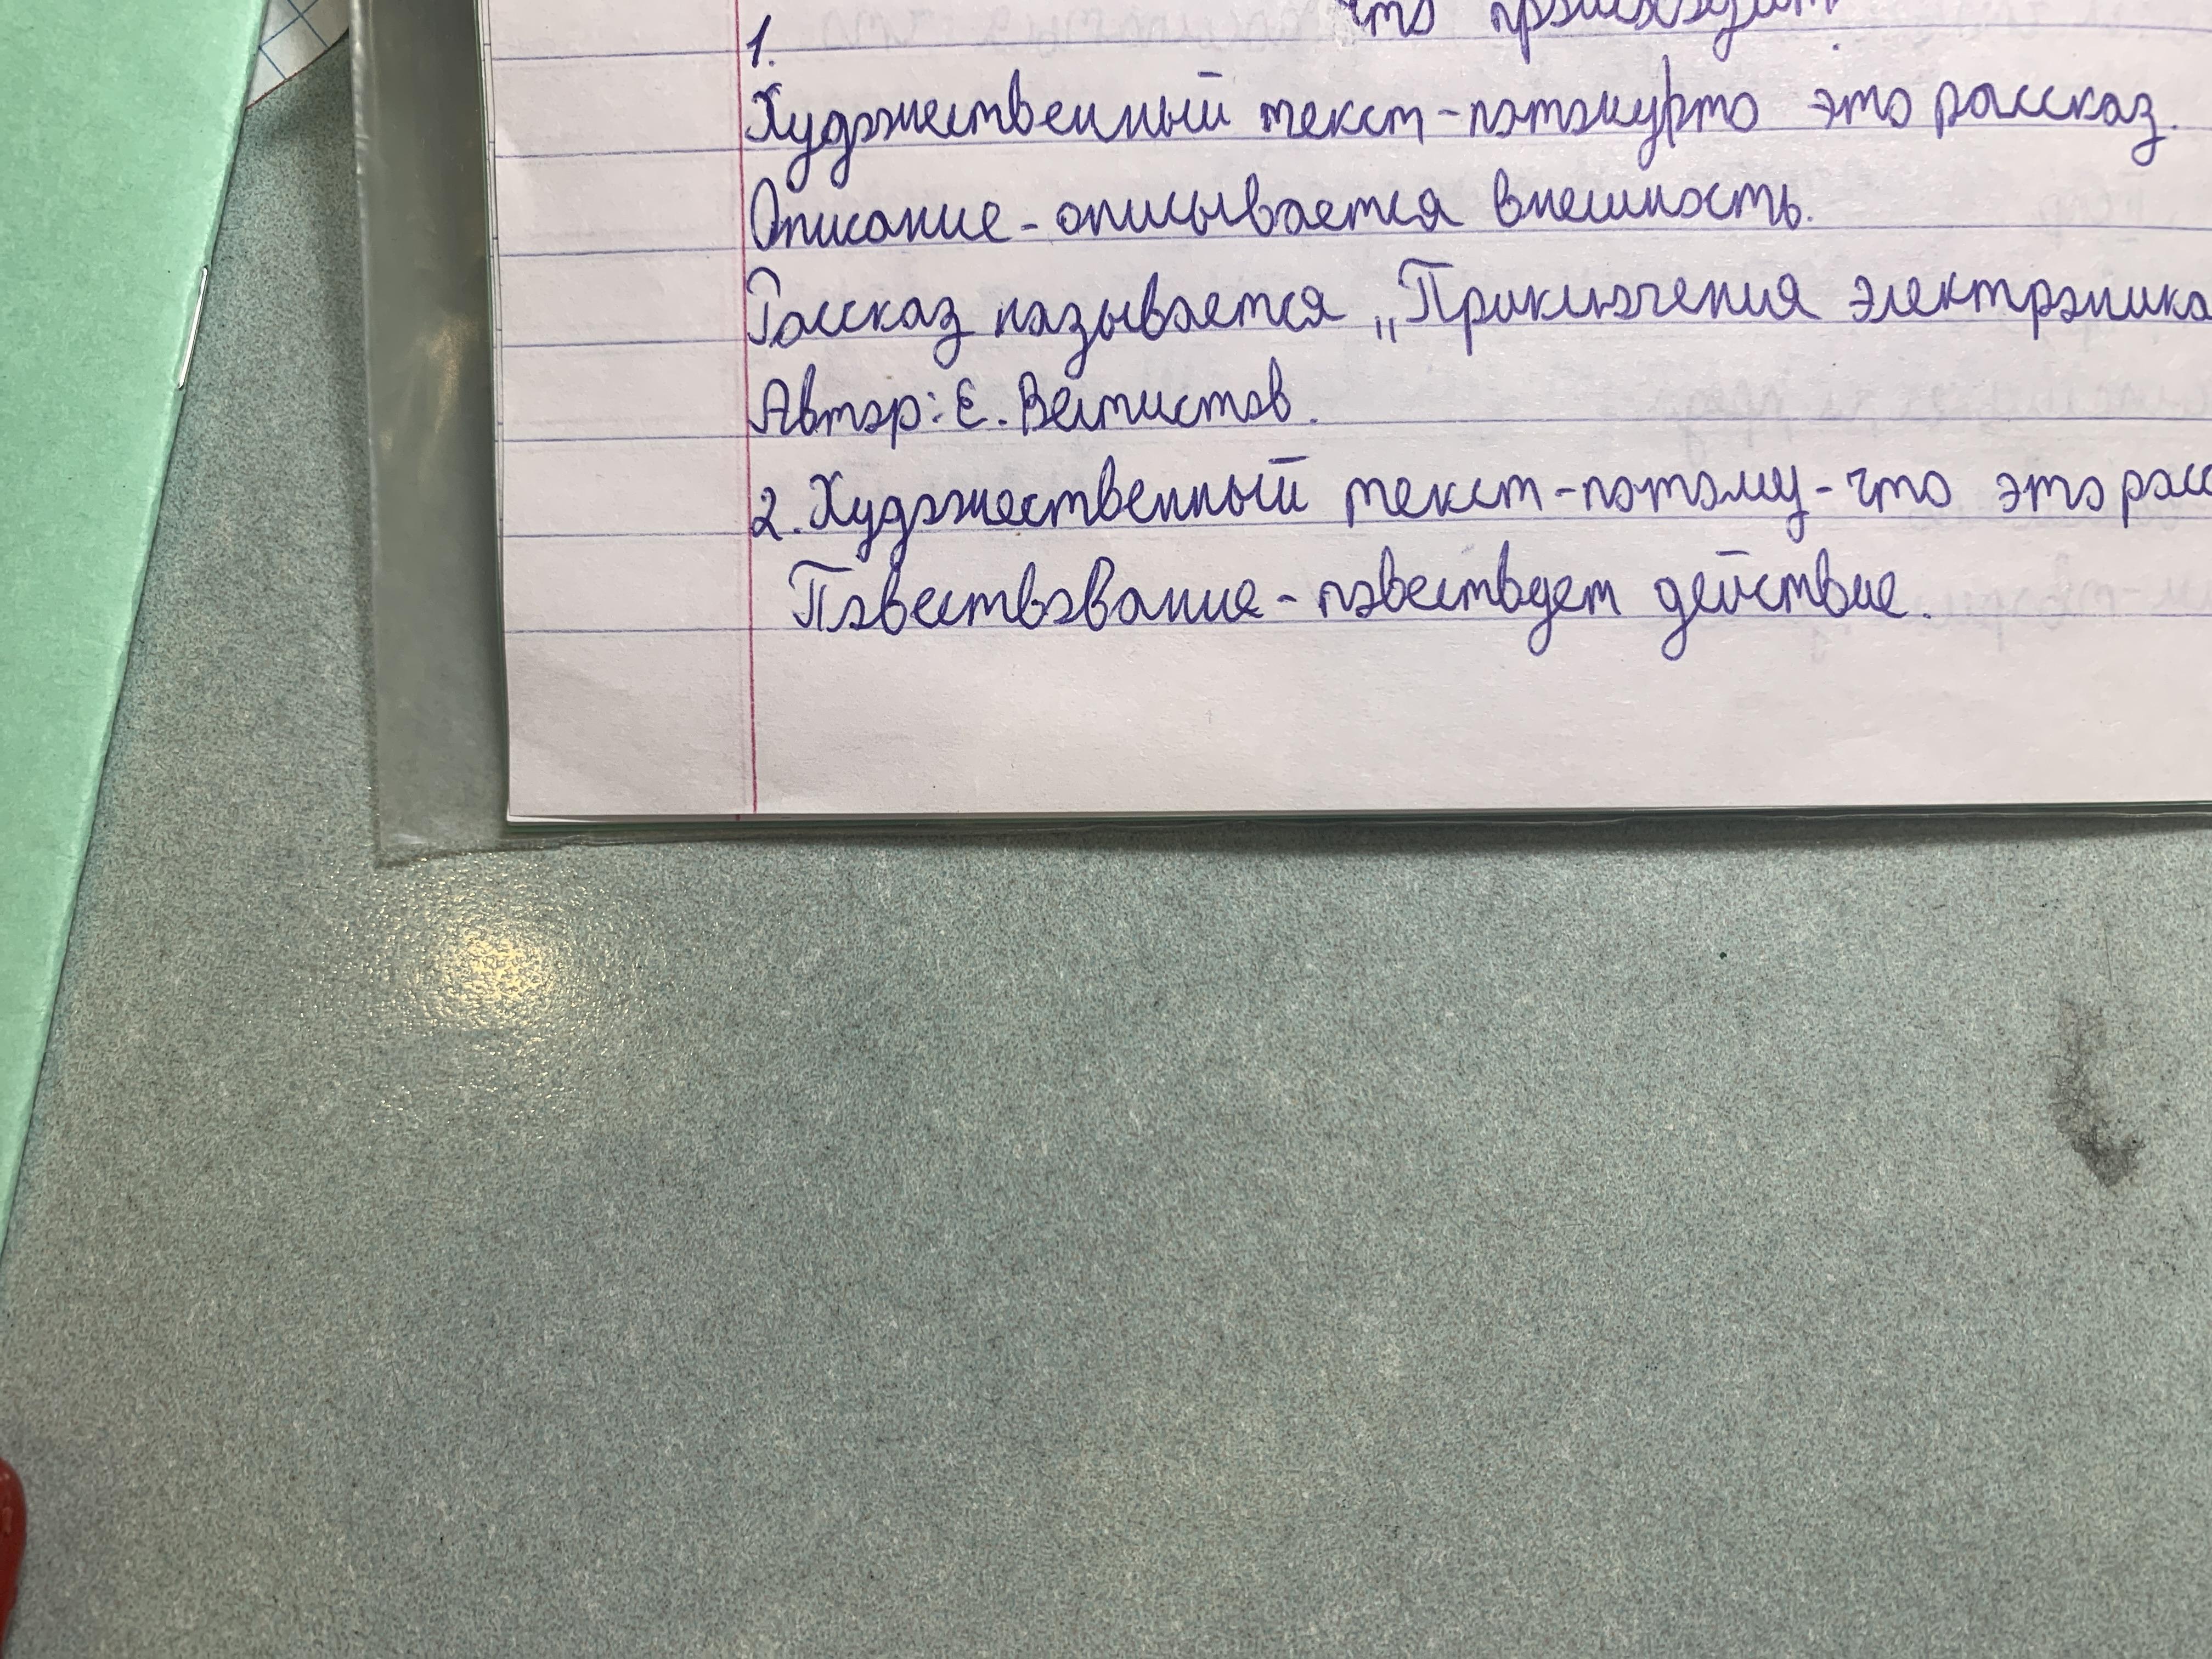 что происходит
1.
Художественный текст-потому что это рассказ.
Описание-описывается внешность.
Рассказ называется „Приключения электроника
Автор: Е. Велтистов.
2. Художественный текст-потому-что это расс
Повествование- действие.